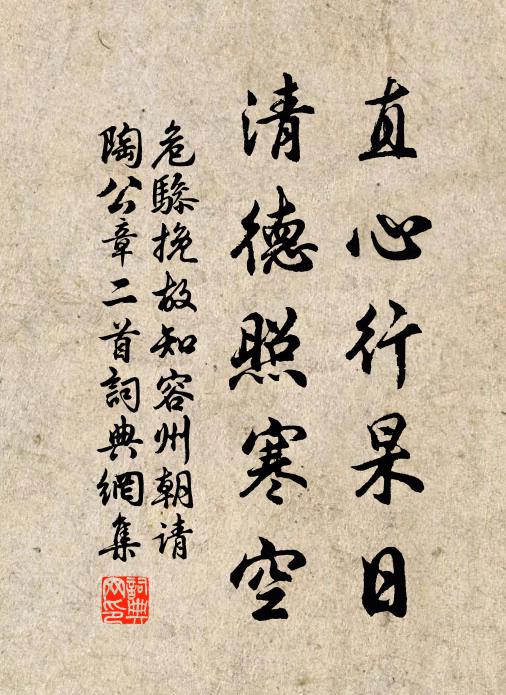 直心行杲日
清德照寒空
危驂挽故知容州朝请
陶公章二首詞典網集
詞典
网印